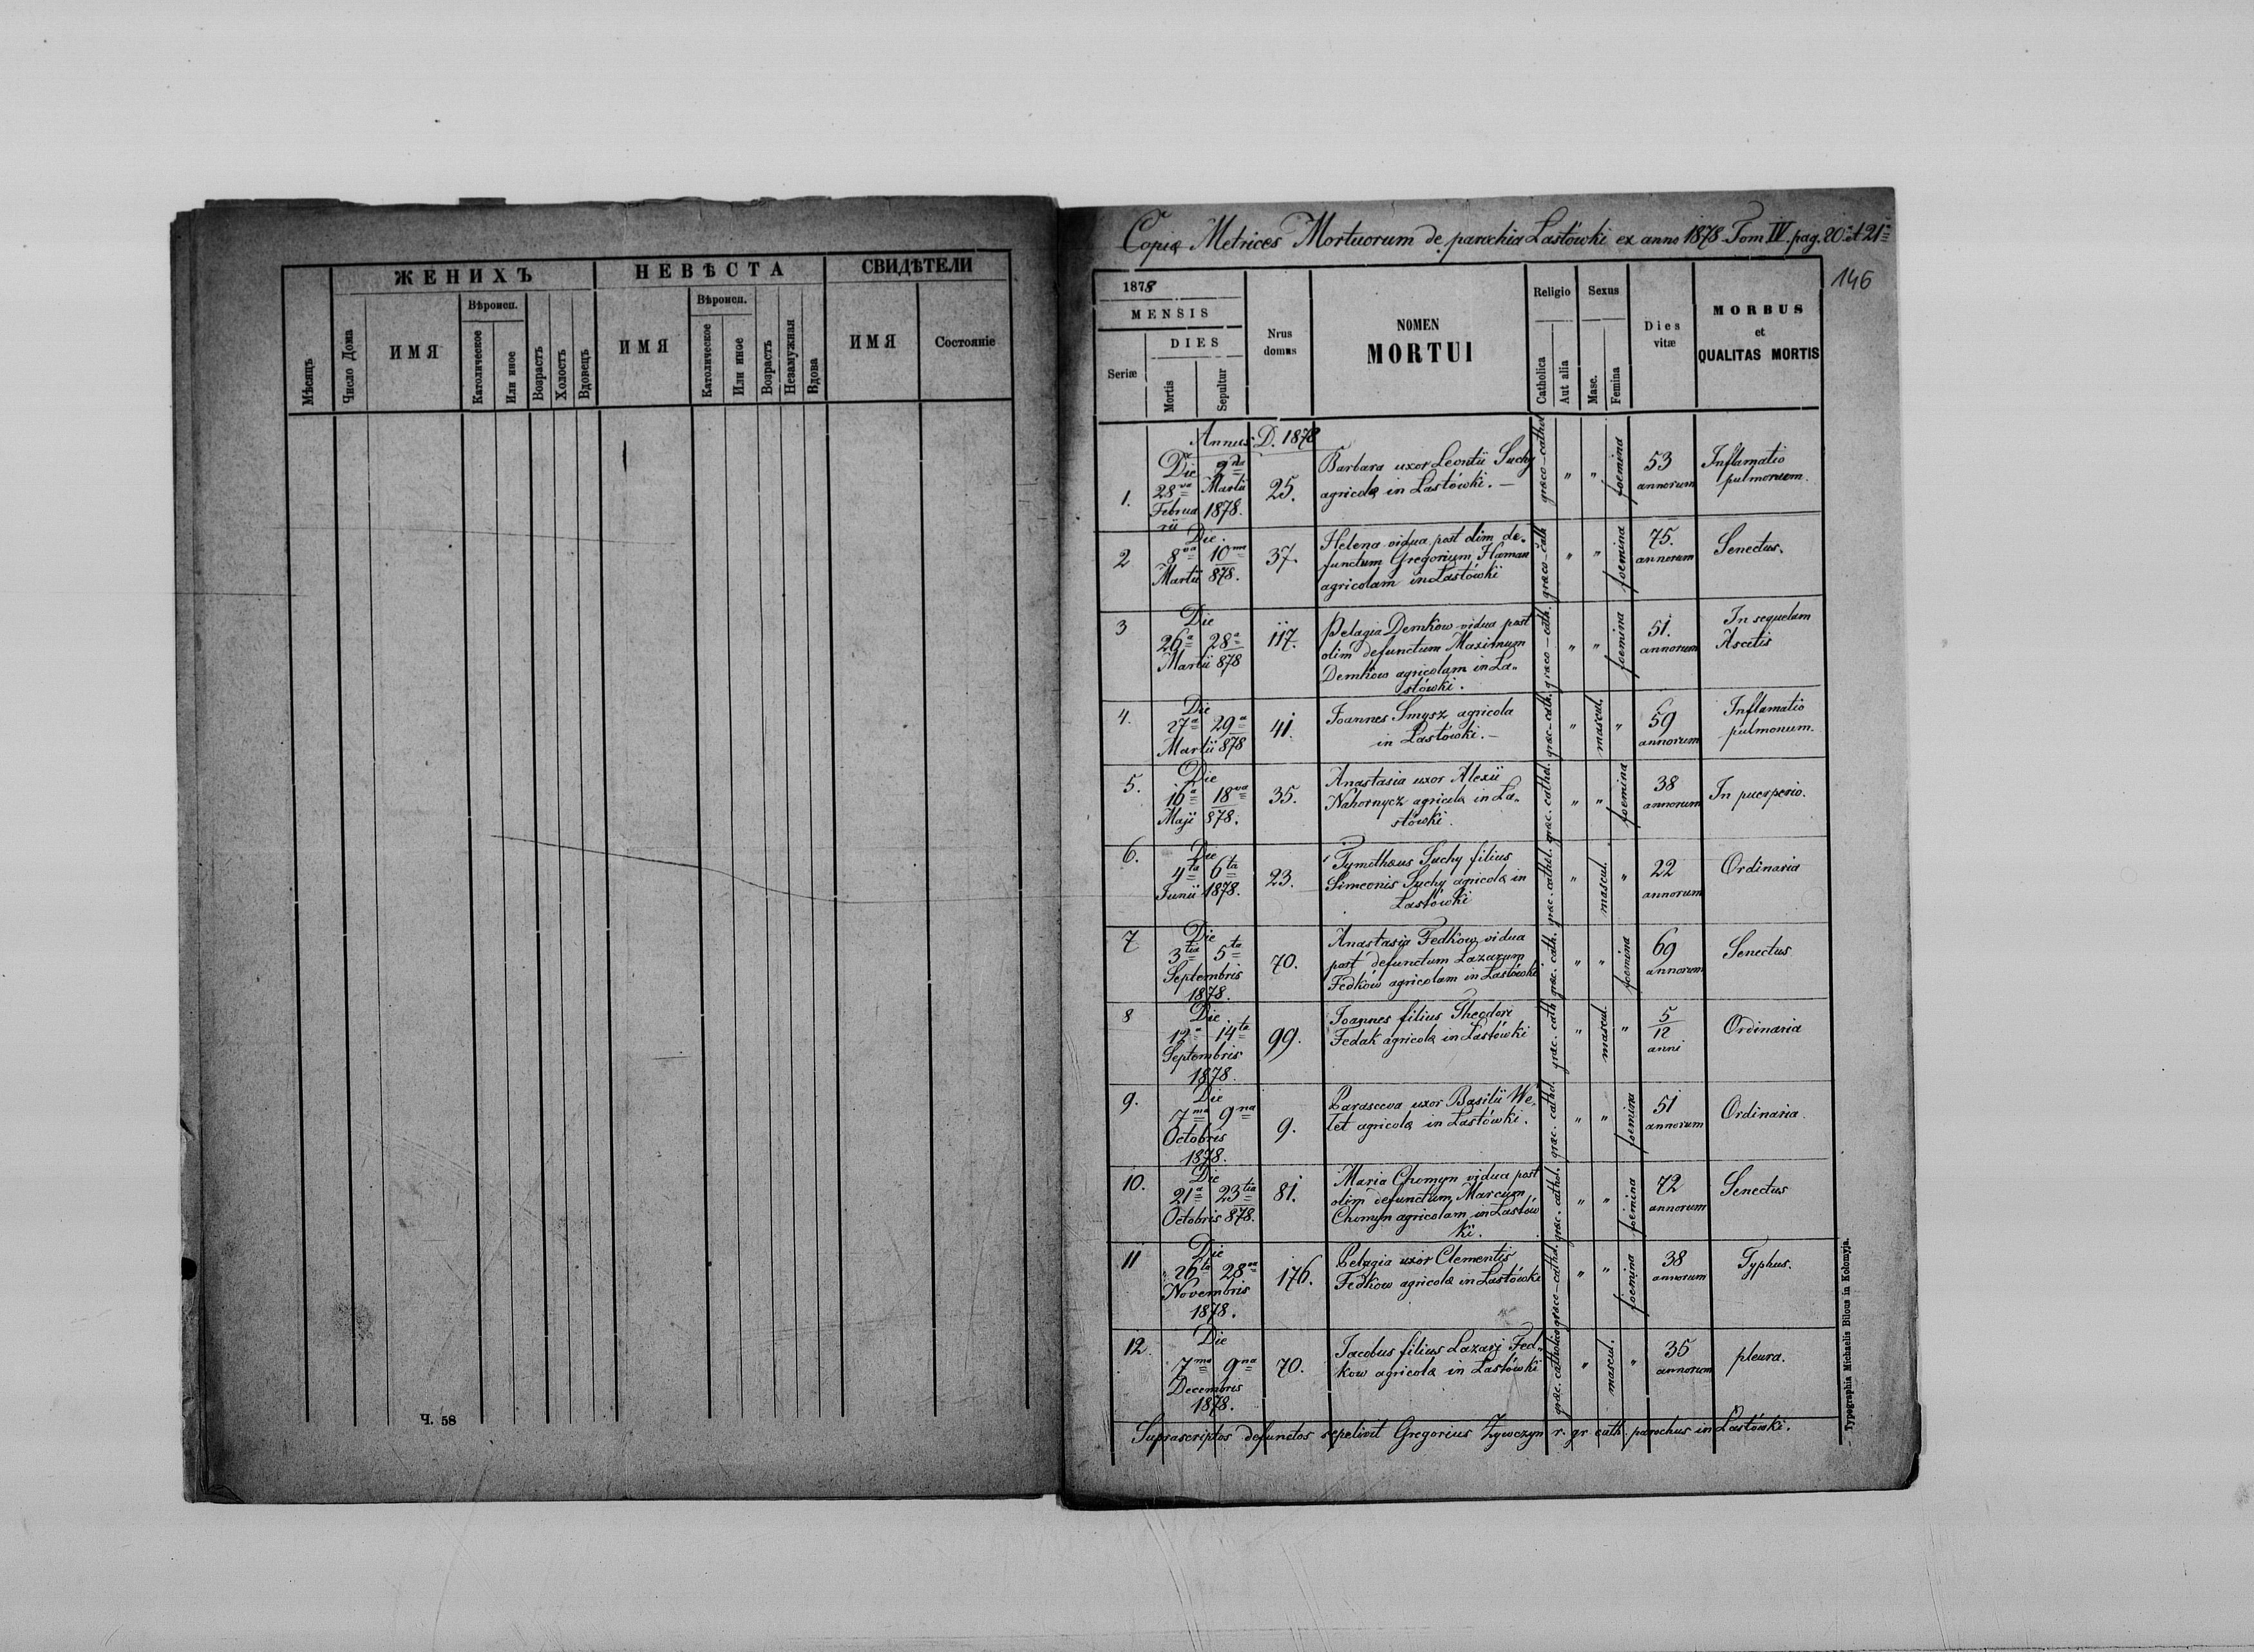 ЖЕНИХЪ НЕВѢСТА СВИДѢТЕЛИ
Мѣсяцъ
Число Дома
ИМЯ
Вѣроисп.
Католическое
Или иное
Возрастъ
Холостъ
Вдовецъ
ИМЯ
Вѣроисп.
Католическое
Или иное
Возрастъ
Незамужная
Вдова
ИМЯ
Состояніе
Ч. 58
Copia Metrices Mortuorum de parochia Lastówki ex anno 1878 Tom IV. pag. 20 et 21
146
1878
MENSIS
Seriæ
DIES
Mortis
Sepultur
Nrus
domus
NOMEN
MORTUI
Religio
Catholica
Aut alia
Sexus
Masc.
Femina
Dies
vitæ
MORBUS
et
QUALITAS MORTIS
Annus D. 1878
1.
Die
28va 2da
Februa Martii
rii 1878.
25.
Barbara uxor Leontii Suchy
agricolæ in Lastówki. —
græco-cathol
" "
foemina
53
annorum
Inflamatio
pulmonum.
2
Die.
8va 10ma
Martii 878.
37.
Helena vidua post olim de-
functum Gregorium Haman
agricolam in Lastówki
græco-cath
" "
foemina
75.
annorum
Senectus.
3
Die
26a 28a
Martii 878
117.
Pelagia Demkow vidua post
olim defunctum Maximum
Demkow agricolam in La-
stówki.
græco-cath.
" "
foemina
51.
annorum
In sequelam
Ascetis
4.
Die
27a 29a
Martii 878
41.
Joannes Smysz agricola
in Lastówki. —
græc-cath.
"
mascul.
"
59
annorum
Inflamatio
pulmonum.
5.
Die
16a 18va
Maji 878.
35.
Anastasia uxor Alexii
Nahornycz agricolæ in La-
stówki.
græc. cathol.
" "
foemina
38
annorum
In puerperio.
6.
Die
4ta 6ta
Junii 1878.
23.
Tymotheus Suchy filius
Simeonis Suchy agricolæ in
Lastówki
græc. cathol.
"
mascul.
"
22
annorum
Ordinaria
7
Die
3tia 5ta
Septembris
1878.
70.
Anastasia Fedkow vidua
post defunctum Lazarum
Fedkow agricolam in Lastówki
græc. cath.
" "
foemina
69
annorum
Senectus
8
Die
12a 14ta
Septembris
1878.
99.
Joannes filius Theodori
Fedak agricolæ in Lastówki
græc. cath
"
mascul.
"
5/12
anni
Ordinaria
9.
Die
7ma 9na
Octobris
1878.
9.
Parasceva uxor Basilii We-
let agricolæ in Lastówki.
græc. cathol.
" "
foemina
51
annorum
Ordinaria.
10.
Die
21a 23tia
Octobris 878.
81.
Maria Chomyn vidua post
olim defunctum Marcum
Chomyn agricolam in Lastów
ki.
græc. cathol.
" "
foemina
72
annorum
Senectus
11
Die
26ta 28va
Novembris
1878.
176.
Pelagia uxor Clementis
Fedkow agricolæ in Lastówki
græco-cathol.
" "
foemina
38
annorum
Typhus.
12.
Die
7ma 9na
Decembris
1878.
70.
Jacobus filius Lazari Fed-
kow agricolæ in Lastówki
græc. catholica
"
mascul.
"
35
annorum
pleura.
Suprascriptos defunctos sepelivit Gregorius Żywczyn r. gr cath. parochus in Lastówki.
Typographia Michaelis Bilous in Kołomyja.